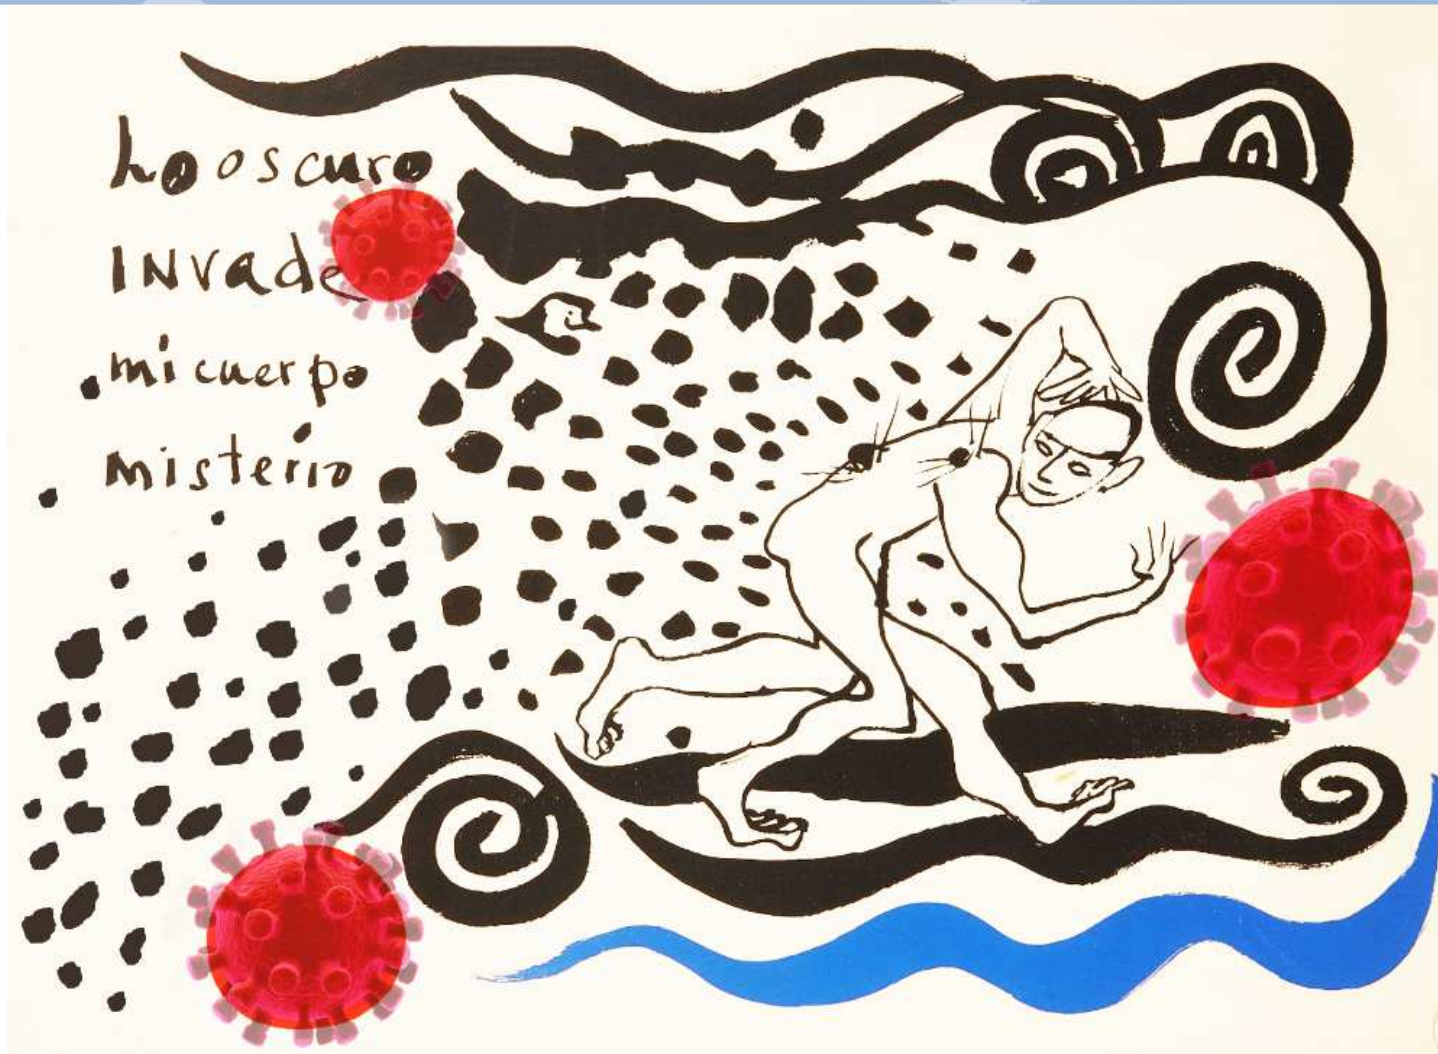 Lo oscuro
INvade
mi cuerpo
misterio